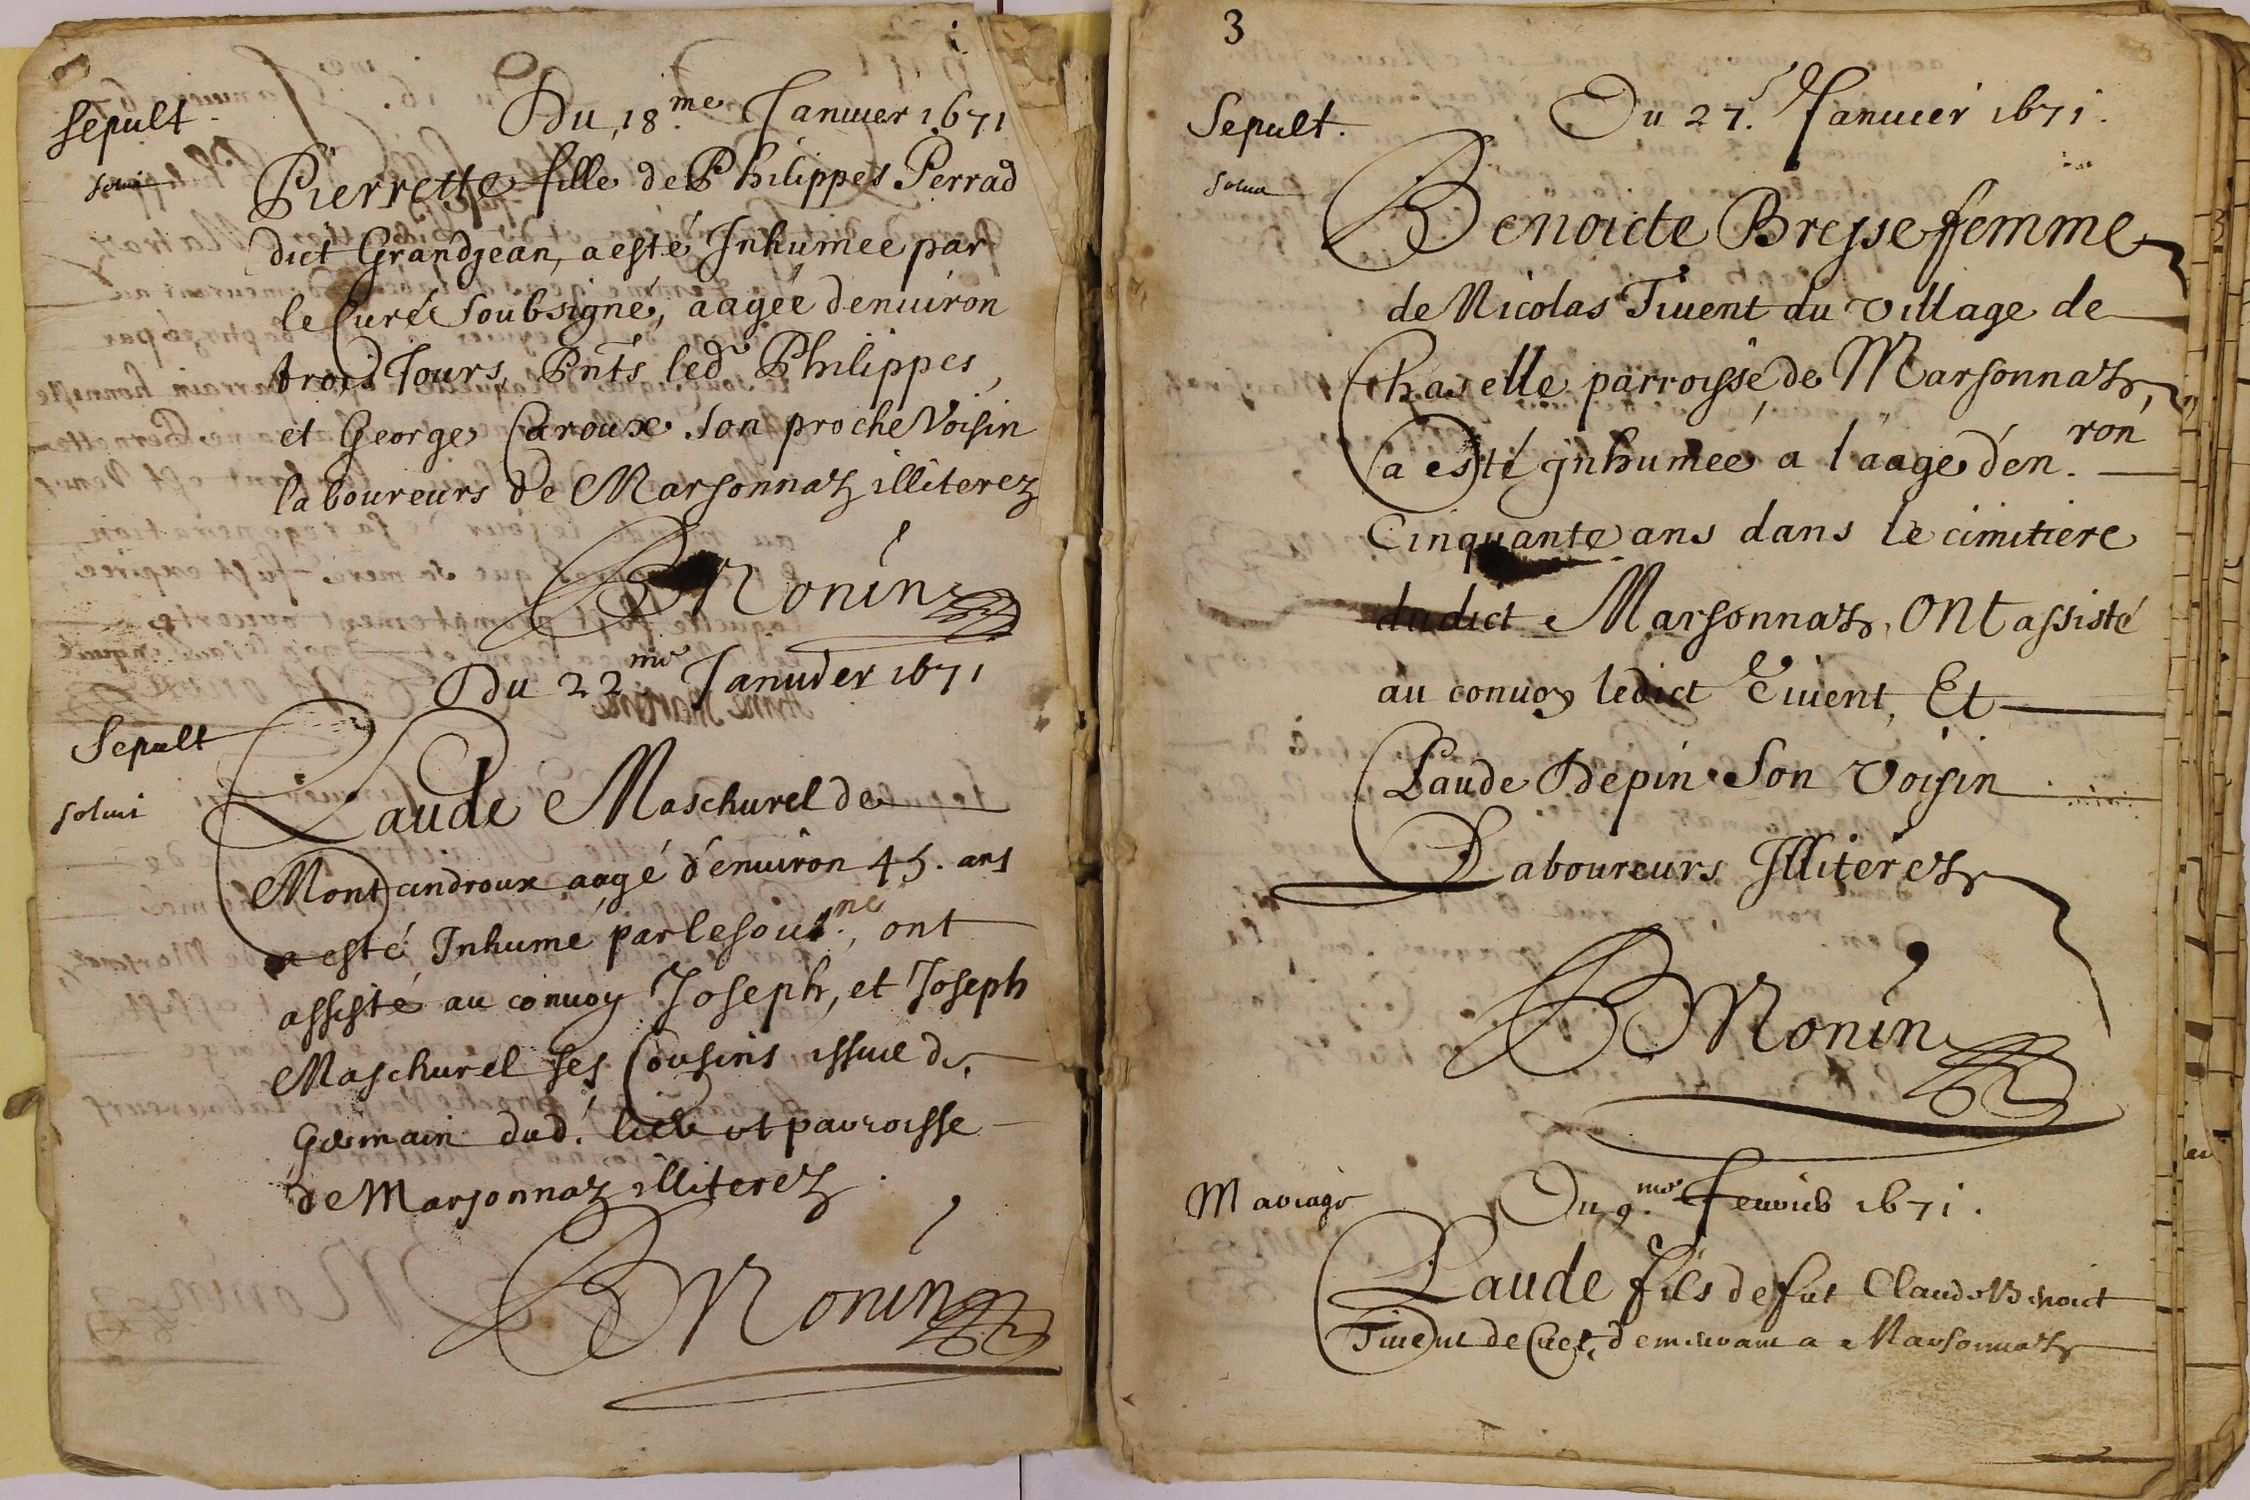 Sepult.
Du 18.me Januier 1671
solui
Pierrette fille de Philippes Perrad
dict Grandjean, a esté Inhumee par
le Curé Soubsigné, aagée denuiron
trois Jours, Pnts led Philippes,
et George Caroux son proche Voisin
laboureurs de Marsonnaz illiterez
B Monin
Du 22me Januier 1671
Sepult
Claude Maschurel de
solui
Montcindroux aagé d'enuiron 45. ans
a esté Inhumé par le sousne., ont
assisté au conuoy Joseph, et Joseph
Maschurel ses Cousins issue de
Germain dud. lieu et parroisse
de Marsonnaz illiterez
B Monin
3
Sepult.
Du 27. Januier 1671.
solui
Benoicte Breysse femme
de Nicolas Tiuent du village de
Chaselle parroisse de Marsonnaz,
a esté ynhumée a l'aage d'en.ron
Cinquante ans dans le cimitiere
dudict Marsonnaz, ont assisté
au conuoy ledict Tiuent, Et
Claude Depin son voisin
Laboureurs Illiterez
B Monin
Mariage
Du 9.me feurier 1671.
Claude fils de fut Claude Benoict
Tiuent de Cuet, demeurant a Marsonnaz